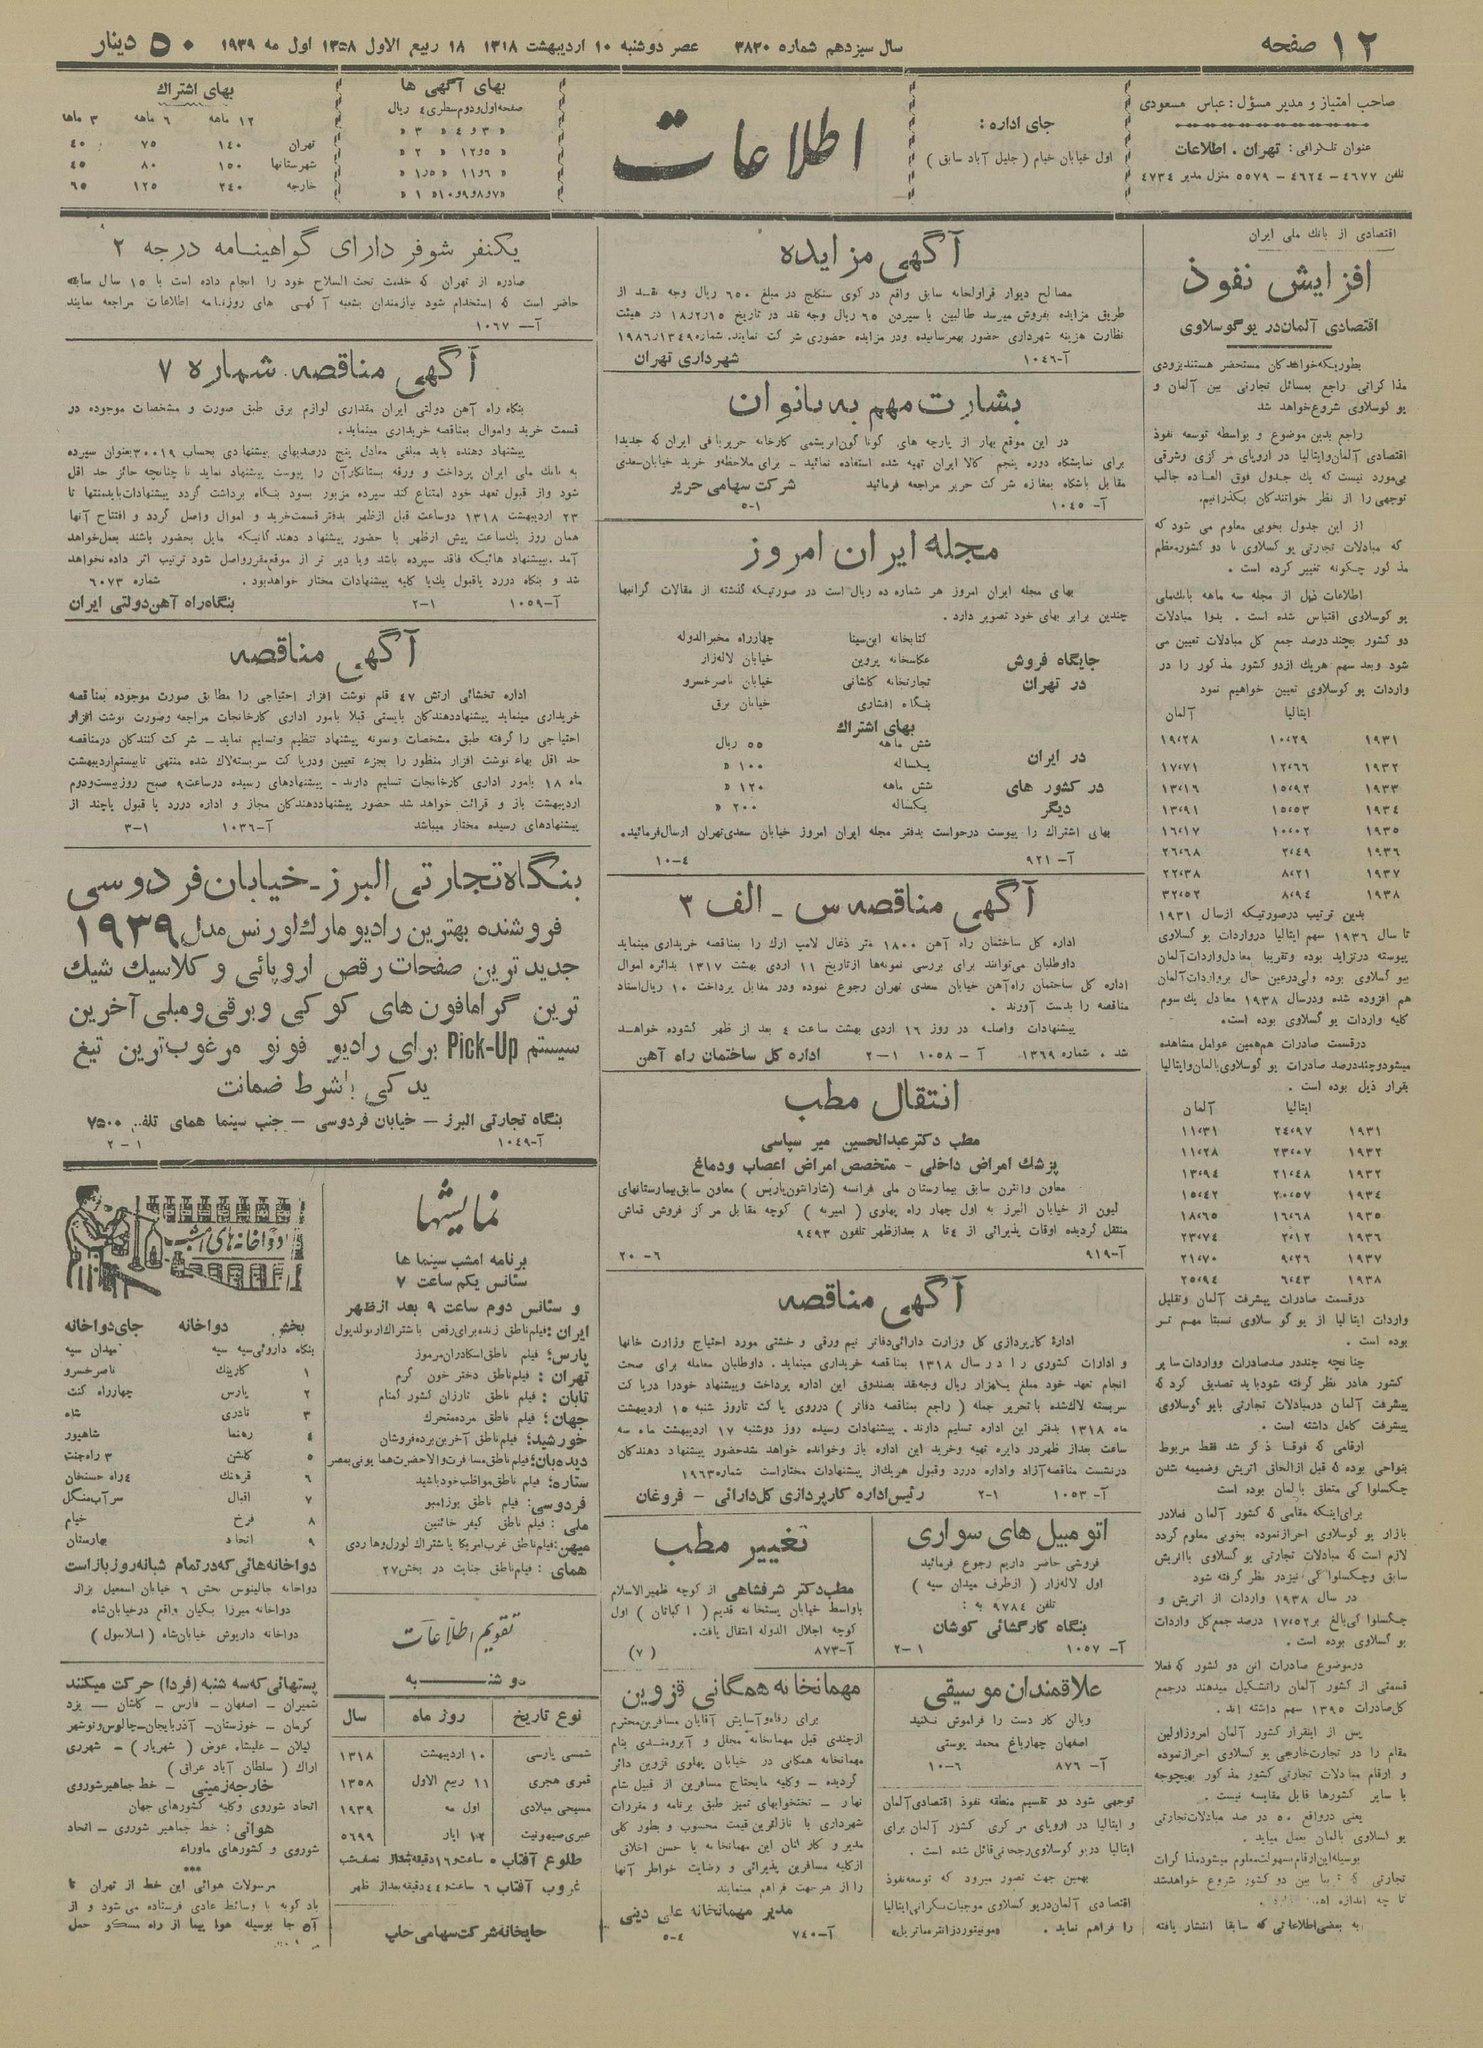 ۱۲ صفحه
سال سیزدهم شماره ۳۸۳۰ عصر دوشنبه ۱۰ اردیبهشت ۱۳۱۸ ۱۸ ربیع الاول ۱۳۵۸ اول مه ۱۹۳۹
۵۰ دینار
صاحب امتیاز و مدیر مسؤل: عباس مسعودی
عنوان تلگرافی: تهران . اطلاعات
تلفن ۴۶۷۷ – ۴۶۲۴ – ۵۵۷۹ منزل مدیر ۴۷۳۴
جای اداره:
اول خیابان خیام ( جلیل آباد سابق )
اطلاعات
بهای آگهی ها
صفحه اول و دوم سطری ۴ ریال
بهای اشتراك
۱۲ ماهه ۶ ماهه ۳ ماهه
تهران ۱۴۰ ۷۵ ۴۰
شهرستانها ۱۵۰ ۸۰ ۴۵
خارجه ۲۴۰ ۱۲۵ ۶۵
اقتصادی از بانك ملی ایران
افزایش نفوذ
اقتصادی آلمان در یوگوسلاوی
بطوریکه خوانندگان مستحضر هستند بزودی
مذاکراتی راجع بمسائل تجارتی بین آلمان و
یوگوسلاوی شروع خواهد شد
راجع بدین موضوع و بواسطه توسعه نفوذ
اقتصادی آلمان و ایتالیا در اروپای مرکزی و شرقی
بی‌مورد نیست که یك جدول فوق العاده جالب
توجهی را از نظر خوانندگان بگذرانیم.
از این جدول بخوبی معلوم می شود که
که مبادلات تجارتی یوگسلاوی با دو کشور معظم
مذکور چگونه تغییر کرده است .
اطلاعات ذیل از مجله سه ماهه بانك ملی
یوگوسلاوی اقتباس شده است . بدوا مبادلات
دو کشور بچند درصد جمع کل مبادلات تعیین می
شود و بعد سهم هریك از دو کشور مذکور را در
واردات یوگوسلاوی تعیین خواهیم نمود
ایتالیا آلمان
۱۹۳۱ ۱۰،۲۹ ۱۹،۲۸
۱۹۳۲ ۱۲،۶۶ ۱۷،۷۱
۱۹۳۳ ۱۵،۹۲ ۱۳،۱۶
۱۹۳۴ ۱۵،۵۳ ۱۳،۹۱
۱۹۳۵ ۱۰،۰۲ ۱۶،۱۷
۱۹۳۶ ۲،۴۹ ۲۶،۶۸
۱۹۳۷ ۸،۲۱ ۲۲،۳۸
۱۹۳۸ ۸،۹۴ ۳۲،۵۲
بدین ترتیب در صورتیکه از سال ۱۹۳۱
تا سال ۱۹۳۶ سهم ایتالیا در واردات یوگوسلاوی
پیوسته در تزاید بوده و تقریبا معادل واردات آلمان
بیوگسلاوی بوده ولی در عین حال بر واردات آلمان
هم افزوده شده و در سال ۱۹۳۸ معادل یك سوم
کلیه واردات یوگسلاوی بوده است.
در قسمت صادرات هم همین عوامل مشاهده
میشود و چند درصد صادرات یوگوسلاوی بالمان و ایتالیا
بقرار ذیل بوده است .
ایتالیا آلمان
۱۹۳۱ ۲۴،۹۷ ۱۱،۳۱
۱۹۳۲ ۲۳،۰۷ ۱۱،۲۸
۱۹۳۲ ۲۱،۴۸ ۱۳،۹۴
۱۹۳۴ ۲۰،۵۷ ۱۵،۴۲
۱۹۳۵ ۱۶،۶۸ ۱۸،۶۵
۱۹۳۶ ۲،۱۲ ۲۳،۷۴
۱۹۳۷ ۹،۲۶ ۲۱،۷۰
۱۹۳۸ ۶،۴۳ ۲۵،۹۴
در قسمت صادرات پیشرفت آلمان و تقلیل
واردات ایتالیا از یوگوسلاوی نسبتا مهم تر
بوده است .
چنانچه چند در صد صادرات و واردات سایر
کشورها در نظر گرفته شود باید تصدیق کرد که
پیشرفت آلمان در مبادلات تجارتی با یوگوسلاوی
پیشرفت کامل داشته است .
ارقامی که فوقا ذکر شد فقط مربوط
بنواحی بوده که قبل از الحاق اتریش و ضمیمه شدن
چکسلواکی متعلق بالمان بوده است
برای اینکه مقامی که کشور آلمان فعلا در
بازار یوگوسلاوی احراز نموده بخوبی معلوم گردد
لازم است که مبادلات تجارتی یوگوسلاوی با اتریش
سابق و چکسلواکی نیز در نظر گرفته شود
در سال ۱۹۳۸ واردات از اتریش و
چکسلواکی بالغ بر ۱۷،۵۲ درصد جمع کل واردات
یوگسلاوی بوده است .
در موضوع صادرات این دو کشور که فعلا
قسمتی از کشور آلمان را تشکیل میدهند در جمع
کل صادرات ۱۳۹۵ سهم داشته اند .
پس از اینقرار کشور آلمان امروز اولین
مقام را در تجارت خارجی یوگسلاوی احراز نموده
و ارقام مبادلات تجارتی کشور مذکور بهیچوجه
با سایر کشورها قابل مقایسه نیست .
یعنی در واقع ۵۰ در صد مبادلات تجارتی
یوگسلاوی بالمان بعمل میاید .
بوسیله این ارقام بسهولت معلوم میشود مذاکرات
تجارتی که بین دو کشور شروع خواهد شد
تا چه اندازه
به بعضی اطلاعاتی که سابقا انتشار یافته
آگهی مزایده
مصالح دیوار قراولخانه سابق واقع در کوی سنگلج در مبلغ ۶۵۰ ریال وجه نقد از
طریق مزایده بفروش میرسد طالبین با سپردن ۶۵ ریال وجه نقد در تاریخ ۱۸/۲/۱۵ در هیئت
نظارت هزینه شهرداری حضور بهمرسانیده و در مزایده حضوری شرکت نمایند. شماره ۱۹۸۶/۱۳۴۹
آ–۱۰۴۶ شهرداری تهران
بشارت مهم به بانوان
در این موقع بهار از پارچه های گوناگون ابریشمی کارخانه حریربافی ایران که جدیدا
برای نمایشگاه دوره پنجم کالا ایران تهیه شده استفاده نمائید – برای ملاحظه و خرید خیابان سعدی
مقابل باشگاه بمغازه شرکت حریر مراجعه فرمائید شرکت سهامی حریر
آ– ۱۰۴۵ ۱–۵
مجله ایران امروز
بهای مجله ایران امروز هر شماره ده ریال است در صورتیکه گذشته از مقالات گرانبها
چندین برابر بهای خود تصویر دارد .
جایگاه فروش در تهران
کتابخانه ابن‌سینا چهارراه مخبرالدوله
عکاسخانه پروین خیابان لاله‌زار
تجارتخانه کاشانی خیابان ناصرخسرو
بنگاه افشاری خیابان برق
بهای اشتراك
در ایران
شش ماهه ۵۵ ریال
یکساله ۱۰۰ »
در کشور های دیگر
شش ماهه ۱۲۰ »
یکساله ۲۰۰ »
بهای اشتراك را پیوست درخواست بدفتر مجله ایران امروز خیابان سعدی تهران ارسال فرمائید.
آ– ۹۲۱ ۴–۱۰
آگهی مناقصه س – الف ۳
اداره کل ساختمان راه آهن ۱۸۰۰ متر ذغال لامپ ارك را بمناقصه خریداری مینماید
داوطلبان می‌توانند برای بررسی نمونه‌ها از تاریخ ۱۱ اردی بهشت ۱۳۱۷ بدائره اموال
اداره کل ساختمان راه‌آهن خیابان سعدی تهران رجوع نموده و در مقابل پرداخت ۱۰ ریال اسناد
مناقصه را بدست آورند .
پیشنهادات واصله در روز ۱۶ اردی بهشت ساعت ۴ بعد از ظهر گشوده خواهد
شد . شماره ۱۳۶۹ آ – ۱۰۵۸ ۱–۲ اداره کل ساختمان راه آهن
انتقال مطب
مطب دکتر عبدالحسین میر سپاسی
پزشك امراض داخلی – متخصص امراض اعصاب و دماغ
معاون و انترن سابق بیمارستان ملی فرانسه (شارانتون پاریس ) معاون سابق بیمارستانهای
لیون از خیابان البرز به اول چهار راه پهلوی ( امیریه ) کوچه مقابل مرکز فروش قماش
منتقل گردیده اوقات پذیرائی از ۴ تا ۸ بعد از ظهر تلفون ۹۴۹۳
آ–۹۱۹ ۶–۲۰
آگهی مناقصه
ادارهٔ کارپردازی کل وزارت دارائی دفاتر نیم ورقی و خشتی مورد احتیاج وزارت خانها
و ادارات کشوری را در سال ۱۳۱۸ بمناقصه خریداری مینماید. داوطلبان معامله برای صحت
انجام تعهد خود مبلغ یکهزار ریال وجه نقد بصندوق این اداره پرداخت و پیشنهاد خود را در پاکت
سربسته لاك شده با تحریر جمله ( راجع بمناقصه دفاتر ) در روی پاکت تا روز شنبه ۱۵ اردیبهشت
ماه ۱۳۱۸ بدفتر این اداره تسلیم دارند. پیشنهادات رسیده روز دوشنبه ۱۷ اردیبهشت ماه سه
ساعت بعد از ظهر در دایره تهیه و خرید این اداره باز و خوانده خواهد شد حضور پیشنهاد دهندگان
در نشست مناقصه آزاد و اداره در رد و قبول هریك از پیشنهادات مختار است شماره ۱۹۶۳
آ– ۱۰۵۳ ۱–۲ رئیس اداره کارپردازی کل دارائی – فروغان
اتومبیل های سواری
فروشی حاضر داریم رجوع فرمائید
اول لاله‌زار ( از طرف میدان سپه )
تلفن ۹۷۸۴ به :
بنگاه کارگشائی کوشان
آ– ۱۰۵۷ ۱–۲
علاقمندان موسیقی
ویالن کار دست را فراموش نکنید
اصفهان چهارباغ محمد یوسفی
آ– ۸۷۶ ۶–۱۰
توجهی شود در تقسیم منطقه نفوذ اقتصادی آلمان
و ایتالیا در اروپای مرکزی کشور آلمان برای
ایتالیا در یوگوسلاوی رجحانی قائل شده است .
بهمین جهت تصور میرود که توسعه نفوذ
اقتصادی آلمان در یوگسلاوی موجبات نگرانی ایتالیا
را فراهم نماید . «مونیتور دز انترماتریل»
تغییر مطب
مطب دکتر شرفشاهی از کوچه ظهیرالاسلام
باواسط خیابان پستخانه قدیم ( اکباتان ) اول
کوچه اجلال الدوله انتقال یافت.
آ–۸۷۳ (۷)
مهمانخانه همگانی قزوین
برای رفاه و آسایش آقایان مسافرین محترم
از چندی قبل مهمانخانه مجلل و آبرومندی بنام
مهمانخانه همگانی در خیابان پهلوی قزوین دائر
گردیده – و کلیه مایحتاج مسافرین از قبیل شام
نهار – تختخوابهای تمیز طبق برنامه و مقررات
شهرداری با نازلترین قیمت محسوب و بطور کلی
مدیر و کارکنان این مهمانخانه با حسن اخلاق
از کلیه مسافرین پذیرائی و رضایت خواطر آنها
را از هر جهت فراهم مینمایند
مدیر مهمانخانه علی دینی
آ–۷۴۰ ۴–۵
یکنفر شوفر دارای گواهینامه درجه ۲
صادره از تهران که خدمت تحت السلاح خود را انجام داده است با ۱۵ سال سابقه
حاضر است که استخدام شود نیازمندان بشعبه آگهی های روزنامه اطلاعات مراجعه نمایند
آ– ۱۰۶۷
آگهی مناقصه شماره ۷
بنگاه راه آهن دولتی ایران مقداری لوازم برق طبق صورت و مشخصات موجوده در
قسمت خرید و اموال بمناقصه خریداری مینماید.
پیشنهاد دهنده باید مبلغی معادل پنج درصد بهای پیشنهادی بحساب ۳۰۰۱۹ بعنوان سپرده
به بانك ملی ایران پرداخت و ورقه بستانکار آن را پیوست پیشنهاد نماید تا چنانچه حائز حد اقل
شود و از قبول تعهد خود امتناع کند سپرده مزبور بسود بنگاه برداشت گردد پیشنهادات باید منتها تا
۲۳ اردیبهشت ۱۳۱۸ دو ساعت قبل از ظهر بدفتر قسمت خرید و اموال واصل گردد و افتتاح آنها
همان روز یك ساعت پیش از ظهر با حضور پیشنهاد دهندگانیکه مایل بحضور باشند بعمل خواهد
آمد . پیشنهاد هائیکه فاقد سپرده باشد و یا دیر تر از موقع مقرر واصل شود ترتیب اثر داده نخواهد
شد و بنگاه در رد یا قبول یك یا کلیه پیشنهادات مختار خواهد بود . شماره ۶۰۷۳
آ–۱۰۵۹ ۱–۲ بنگاه راه آهن دولتی ایران
آگهی مناقصه
اداره تخشائی ارتش ۴۷ قلم نوشت افزار احتیاجی را مطابق صورت موجوده بمناقصه
خریداری مینماید پیشنهاد دهندگان بایستی قبلا بامور اداری کارخانجات مراجعه و صورت نوشت افزار
احتیاجی را گرفته طبق مشخصات و نمونه پیشنهاد تنظیم و تسلیم نماید – شرکت کنندگان در مناقصه
حد اقل بهاء نوشت افزار منظور را بجزء تعیین و در پاکت سربسته لاك شده منتهی تا بیستم اردیبهشت
ماه ۱۸ بامور اداری کارخانجات تسلیم دارند – پیشنهادهای رسیده در ساعت ۹ صبح روز بیست و دوم
اردیبهشت باز و قرائت خواهد شد حضور پیشنهاد دهندگان مجاز و اداره در رد یا قبول یا چند از
پیشنهادهای رسیده مختار میباشد آ–۱۰۳۶ ۱–۳
بنگاه تجارتی البرز – خیابان فردوسی
فروشنده بهترین رادیو مارك لورنس مدل ۱۹۳۹
جدید ترین صفحات رقص اروپائی و کلاسیك شیك
ترین گرامافون های کوکی و برقی و مبلی آخرین
سیستم Pick-Up برای رادیو فونو مرغوب‌ترین تیغ
یدکی با شرط ضمانت
بنگاه تجارتی البرز – خیابان فردوسی – جنب سینما همای تلفن ۷۵۰۰
آ–۱۰۴۹ ۱–۲
نمایشها
برنامه امشب سینما ها
سئانس یکم ساعت ۷
و سئانس دوم ساعت ۹ بعد از ظهر
ایران: فیلم ناطق زنده برای رقص با شتراك ارلو لدپول
پارس: فیلم ناطق اسکادران مرموز
تهران : فیلم ناطق دختر خون گرم
تابان : فیلم ناطق تارزان کشور گمنام
جهان: فیلم ناطق مرده متحرك
خورشید: فیلم ناطق آخرین برده فروشان
دیده‌بان: فیلم ناطق مسافرت والاحضرت همایونی بمصر
ستاره: فیلم ناطق مواظب خود باشید
فردوسی: فیلم ناطق بوزامبو
ملی : فیلم ناطق کیفر خائنین
میهن: فیلم ناطق غرب امریکا با شتراك لورل و هاردی
همای : فیلم ناطق جنایت در بخش ۲۷
تقویم اطلاعات
دوشنبه
نوع تاریخ روز ماه سال
شمسی پارسی ۱۰ اردیبهشت ۱۳۱۸
قمری هجری ۱۱ ربیع الاول ۱۳۵۸
مسیحی میلادی اول مه ۱۹۳۹
عبری صیهونیت ۱۲ ایار ۵۶۹۹
طلوع آفتاب ۵ ساعت و ۱۶ دقیقه بعد از نصف شب
غروب آفتاب ۶ ساعت و ۴۴ دقیقه بعد از ظهر
چاپخانه شرکت سهامی چاپ
دواخانه‌های شب
بخش دواخانه جای دواخانه
بنگاه داروئی سپه سپه میدان سپه
۱ کارنیك ناصرخسرو
۲ پارس چهارراه کنت
۳ نادری شاه
۴ رهنما شاهپور
۵ گلشن ۳ راه جنت
۶ فرهنك ۴ راه حسنخان
۷ اقبال سرآب منگل
۸ فرخ خیام
۹ اتحاد بهارستان
دواخانه هائی که در تمام شبانه روز باز است
دواخانه جالینوس بخش ۶ خیابان اسمعیل بزاز
دواخانه میرزا یکیان واقع در خیابان شاه
دواخانه داریوش خیابان شاه ( اسلامبول )
پستهائی که سه شنبه (فردا) حرکت میکنند
شمیران – اصفهان – فارس – کاشان – یزد
کرمان – خوزستان – آذربایجان – چالوس و نوشهر
لیلان – علیشاه عوض ( شهریار ) – شهرری
اراك ( سلطان آباد عراق )
خارجه زمینی – خط جماهیر شوروی
اتحاد شوروی و کلیه کشورهای جهان
هوائی: خط جماهیر شوروی – اتحاد
شوروی و کشورهای ماوراء
***
مرسولات هوائی این خط از تهران تا
باد کوبه با وسائط عادی فرستاده می شود و از
آن جا بوسیله هوا پیما از راه مسکو حمل